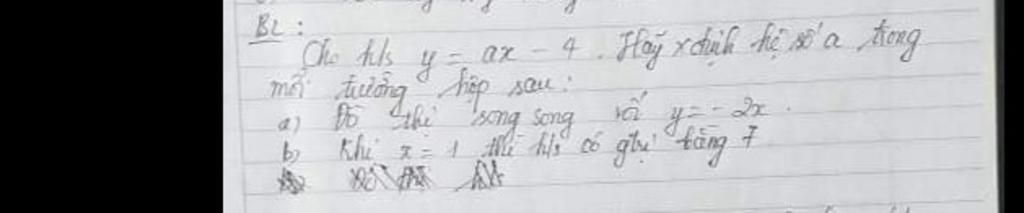 B2:
Cho h/s y = ax - 4. Hãy xđịnh hệ số a trong
mỗi trường hợp sau:
a) Đồ thị song song với y = - 2x.
b) Khi x = 1 thì h/s có gtrị bằng 7